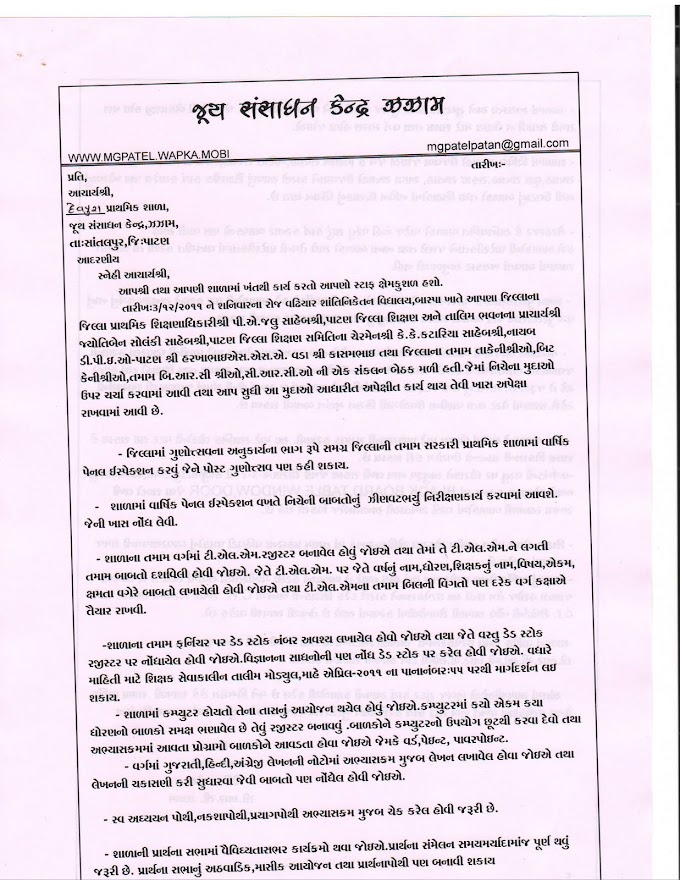 જૂથ સંસાધન કેન્દ્ર ઝઝામ
WWW.MGPATEL.WAPKA.MOBI
mgpatelpatan@gmail.com
તારીખઃ-
પ્રતિ,
આચાર્યશ્રી,
દેવપુરા પ્રાથમિક શાળા,
જૂથ સંસાધન કેન્દ્ર,ઝઝામ,
તાઃસાંતલપુર,જિઃપાટણ
આદરણીય
સ્નેહી આચાર્યશ્રી,
આપશ્રી તથા આપણી શાળામાં ખંતથી કાર્ય કરતો આપણો સ્ટાફ ક્ષેમકુશળ હશો.
તારીખઃ૩/૧૨/૨૦૧૧ ને શનિવારના રોજ વઢિયાર શાંતિનિકેતન વિદ્યાલય,બાસ્પા ખાતે આપણા જિલ્લાના
જિલ્લા પ્રાથમિક શિક્ષણાધિકારીશ્રી પી.એ.જલુ સાહેબશ્રી,પાટણ જિલ્લા શિક્ષણ અને તાલિમ ભવનના પ્રાચાર્યશ્રી
જ્યોતિબેન સોલંકી સાહેબશ્રી,પાટણ જિલ્લા શિક્ષણ સમિતિના ચેરમેનશ્રી કે.કે.કટારિયા સાહેબશ્રી,નાયબ
ડી.પી.ઇ.ઓ-પાટણ શ્રી હરખાભાઇએસ.એસ.એ. વડા શ્રી કાસમભાઇ તથા જિલ્લાના તમામ તાકેનીશ્રીઓ,બિટ
કેનીશ્રીઓ,તમામ બિ.આર.સી શ્રીઓ,સી.આર.સી.ઓ ની એક સંકલન બેઠક મળી હતી.જેમાં નિચેના મુદાઓ
ઉપર ચર્ચા કરવામાં આવી તથા આપ સુધી આ મુદાઓ આધારીત અપેક્ષીત કાર્ય થાય તેવી ખાસ અપેક્ષા
રાખવામાં આવી છે.
- જિલ્લામાં ગુણોત્સવના અનુકાર્યના ભાગ રૂપે સમગ્ર જિલ્લાની તમામ સરકારી પ્રાથમિક શાળામાં વાર્ષિક
પેનલ ઇસ્પેકશન કરવું જેને પોસ્ટ ગુણોત્સવ પણ કહી શકાય.
- શાળામાં વાર્ષિક પેનલ ઇસ્પેકશન વખતે નિચેની બાબતોનું ઝીણવટભર્યુ નિરીક્ષણકાર્ય કરવામાં આવશે.
જેની ખાસ નોંધ લેવી.
- શાળાના તમામ વર્ગમાં ટી.એલ.એમ.રજીસ્ટર બનાવેલ હોવું જોઇએ તથા તેમાં તે ટી.એલ.એમ.ને લગતી
તમામ બાબતો દર્શાવેલી હોવી જોઇએ. જેતે ટી.એલ.એમ. પર જેતે વર્ષનું નામ,ધોરણ,શિક્ષકનું નામ,વિષય,એકમ,
ક્ષમતા વગેરે બાબતો લખાયેલી હોવી જોઇએ તથા ટી.એલ.એમના તમામ બિલની વિગતો પણ દરેક વર્ગ કક્ષાએ
તૈયાર રાખવી.
-શાળાના તમામ ફર્નિચર પર ડેડ સ્ટોક નંબર અવશ્ય લખાયેલ હોવો જોઇએ તથા જેતે વસ્તુ ડેડ સ્ટોક
રજીસ્ટર પર નોંધાયેલ હોવી જોઇએ.વિજ્ઞાનના સાધનોની પણ નોંધ ડેડ સ્ટોક પર કરેલ હોવી જોઇએ. વધારે
માહિતી માટે શિક્ષક સેવાકાલીન તાલીમ મોડ્યુલ,માહે એપ્રિલ-૨૦૧૧ ના પાનાનંબરઃ૫૫ પરથી માર્ગદર્શન લઇ
શકાય.
- શાળામાં કમ્પ્યુટર હોયતો તેના તાસનું આયોજન થયેલ હોવું જોઇએ.કમ્પ્યુટરમાં કયો એકમ કયા
ધોરણનો બાળકો સમક્ષ ભણાવેલ છે તેવું રજીસ્ટર બનાવવું .બાળકોને કમ્પ્યુટરનો ઉપયોગ છૂટથી કરવા દેવો તથા
અભ્યાસક્રમમાં આવતા પ્રોગ્રામો બાળકોને આવડતા હોવા જોઇએ જેમકે વર્ડ,પેઇન્ટ, પાવરપોઇન્ટ.
- વર્ગમાં ગુજરાતી,હિન્દી,અંગ્રેજી લેખનની નોટોમાં અભ્યાસક્રમ મુજબ લેખન લખાવેલ હોવા જોઇએ તથા
લેખનની ચકાસણી કરી સુધારવા જેવી બાબતો પણ નોંધેલ હોવી જોઇએ.
- સ્વ અધ્યયન પોથી,નકશાપોથી,પ્રયાગપોથી અભ્યાસક્રમ મુજબ ચેક કરેલ હોવી જરૂરી છે.
- શાળાની પ્રાર્થના સભામાં વૈવિધ્યતાસભર કાર્યક્રમો થવા જોઇએ.પ્રાર્થના સંમેલન સમયમર્યાદામાંજ પૂર્ણ થવું
જરૂરી છે. પ્રાર્થના સભાનું અઠવાડિક,માસીક આયોજન તથા પ્રાર્થનાપોથી પણ બનાવી શકાય